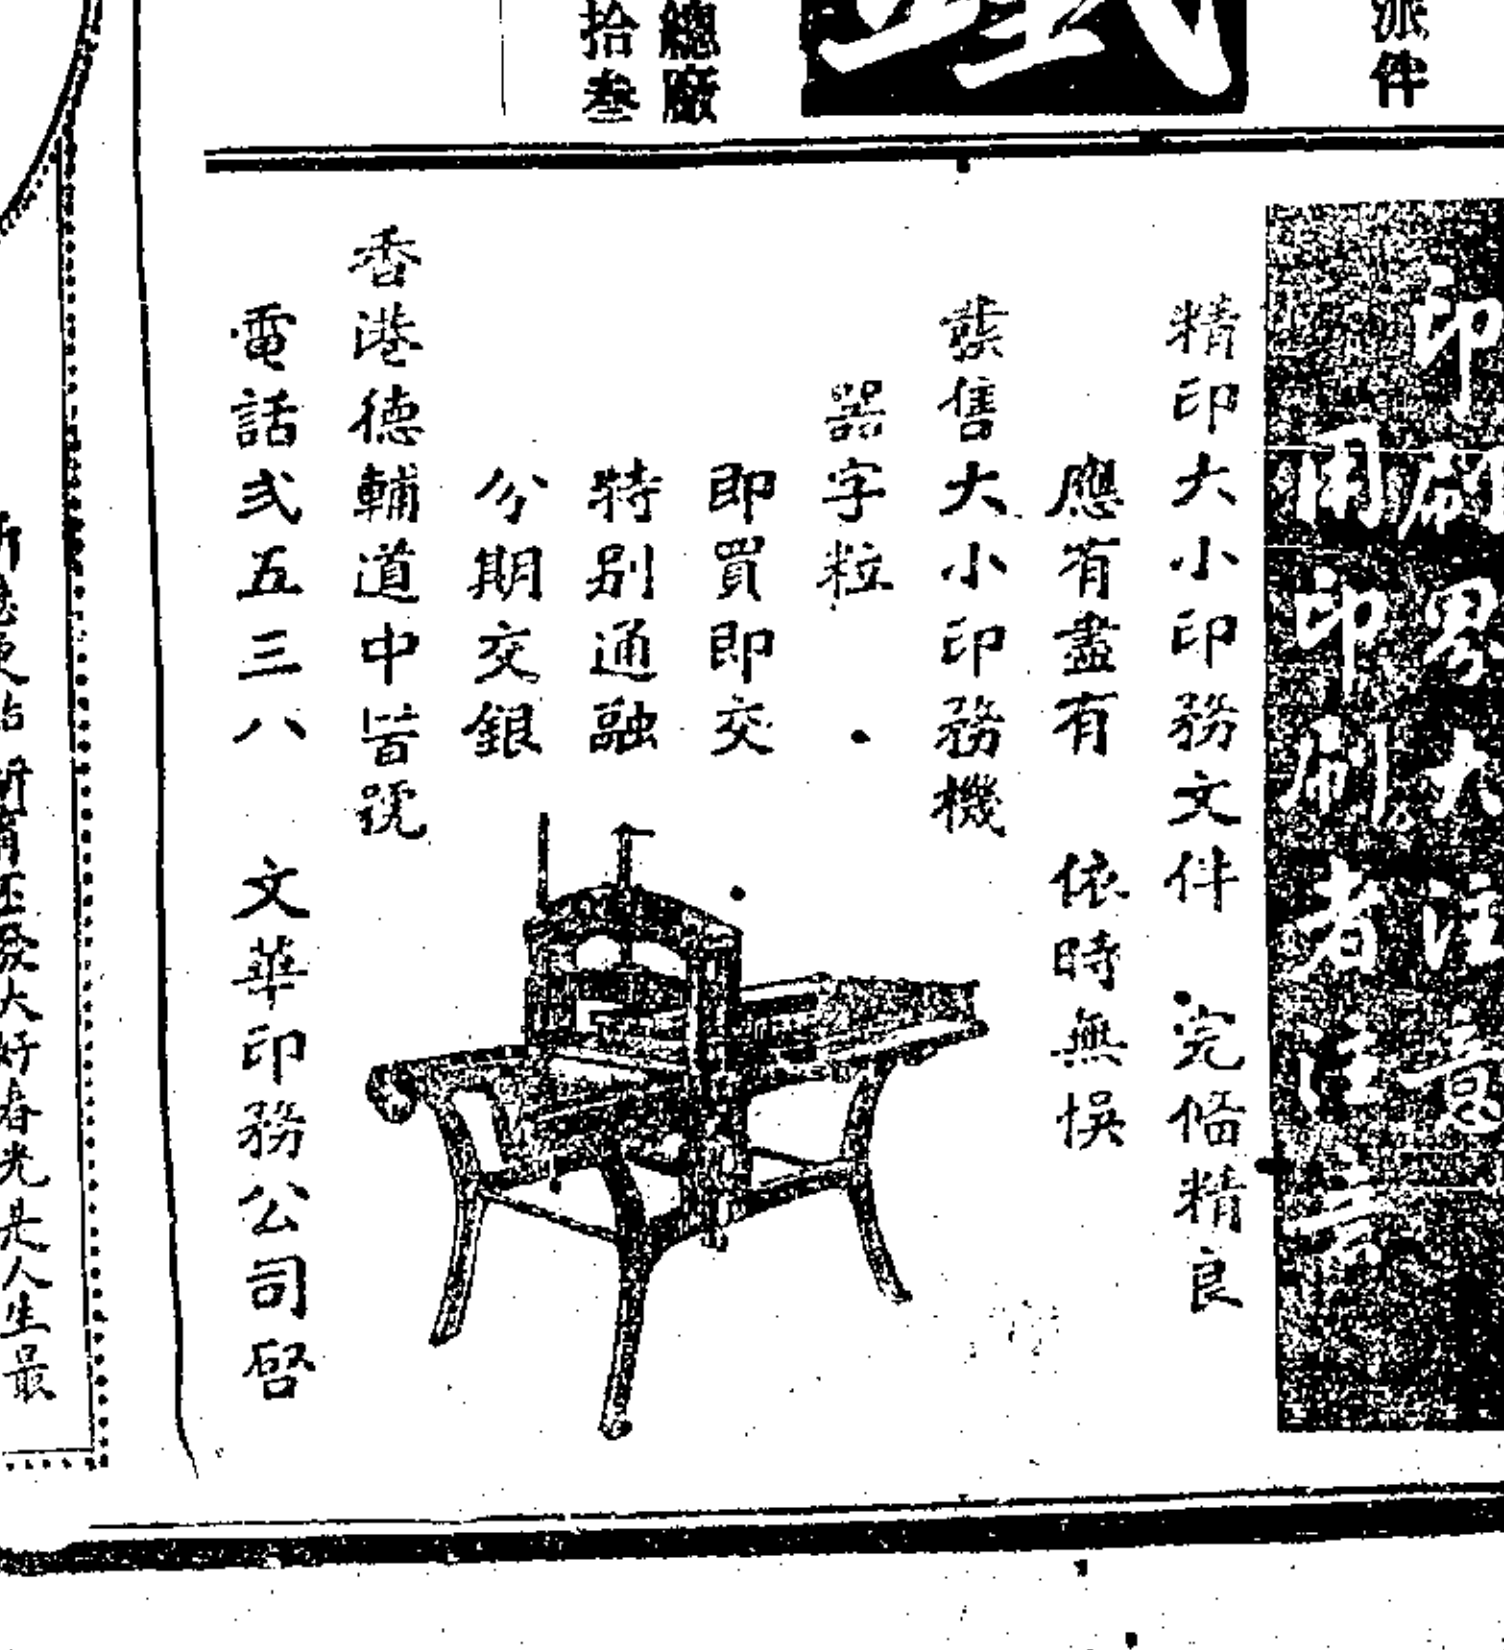 派件
總廠
拾叁
印刷界大注意
用印刷者注意
精印大小印務文件 完俻精良
應有盡有 依時無悞
售大小印務機
器字粒
即買即交
特别通融
分期交銀
香港德輔道中號
電話弍五三八 文華印務公司啓
大好春光是人生最